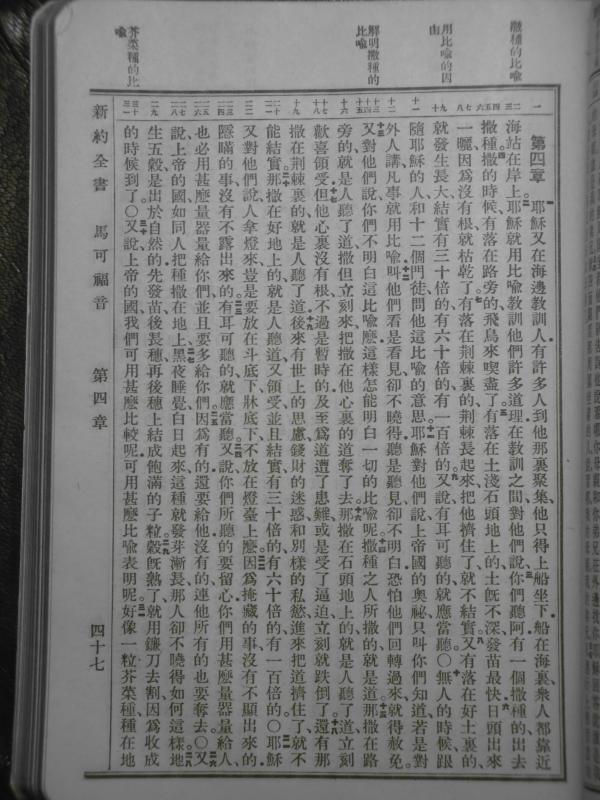 撒種的比喩
用比喩的因由
解明撒種的比喩
芥菜種的比喩
第四章 耶穌又在海邊教訓人有許多人到他那裏聚集他只得上船坐下船在海裏衆人都靠近
海站在岸上耶穌就用比喩教訓他們許多道理在教訓之間對他們說你們聽阿有一個撒種的出去
撒種撒的時候有落在路旁的飛鳥來喫盡了有落在土淺石頭地上的土旣不深發苗最快日頭出來
一曬因爲沒有根就枯乾了有落在荆棘裏的荆棘長起來把他擠住了就不結實又有落在好土裏的
就發生長大結實有三十倍的有六十倍的有一百倍的又說有耳可聽的就應當聽〇無人的時候跟
隨耶穌的人和十二個門徒問他這比喩的意思耶穌對他們說上帝國的奧祕只叫你們知道若是對
外人講凡事就用比喩叫他們看是看見卻不曉得聽是聽見卻不明白恐怕他們回轉過來就得赦免
又對他們說你們不明白這比喩麽這樣怎能明白一切的比喩呢撒種之人所撒的就是道那撒在路
旁的就是人聽了道撒但立刻來把撒在他心裏的道奪了去那撒在石頭地上的就是人聽了道立刻
歡喜領受但他心裏沒有根不過是暫時的及至爲道遭了患難或是受了逼迫立刻就跌倒了還有那
撒在荆棘裏的就是人聽了道後來有世上的思慮錢財的迷惑和別樣的私慾進來把道擠住了就不
能結實那撒在好地上的就是人聽道又領受並且結實有三十倍的有六十倍的有一百倍的〇耶穌
又對他們說人拿燈來豈是要放在斗底下牀底下不放在燈臺上麽因爲掩藏的事沒有不顯出來的
隱瞞的事沒有不露出來的有耳可聽的就應當聽又說你們所聽的要留心你們用甚麽量器量給人
也必用甚麽量器量給你們並且要多給你們因爲有的還要給他沒有的連他所有的也要奪去〇又
說上帝的國如同人把種撒在地上黑夜睡覺白日起來這種就發芽漸長那人卻不曉得如何這樣地
生五穀是出於自然的先發苗後長穗再後穗上結成飽滿的子粒穀旣熟了就用鐮刀去割因爲收成
的時候到了〇又說上帝的國我們可用甚麽比較呢可用甚麽比喩表明呢好像一粒芥菜種種在地
新約全書 馬可福音 第四章 四十七